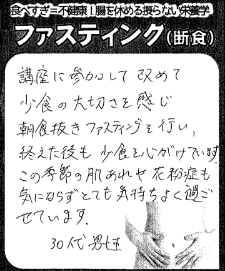 食べすぎ=不健康！腸を休める摂らない栄養学
ファスティング(断食)
講座に参加して改めて
少食の大切さを感じ
朝食抜きファスティングを行い、
終えた後も少食を心がけています。
この季節の肌あれや花粉症も
気にならずとても気持ちよく過ご
せています。
30代 男性